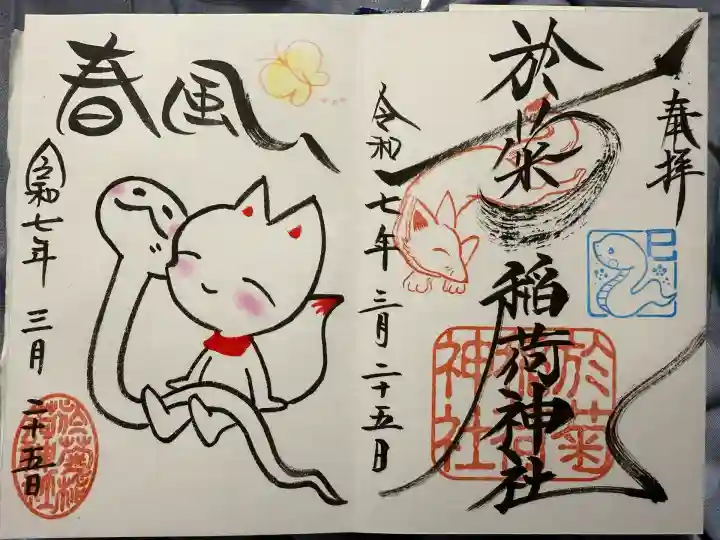 奉拝
巳
於菊稲荷神社
於菊稲荷神社
令和七年三月二十五日
春風
令和七年 三月 二十五日
於菊稲荷神社